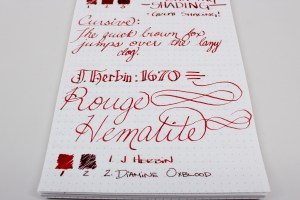 SHADING
Cursive:
The quick brown fox
jumps over the lazy
dog!
J. Herbin: 1670
Rouge
Hematite
1. J HERBIN
1 2 2. DIAMINE OXBLOOD